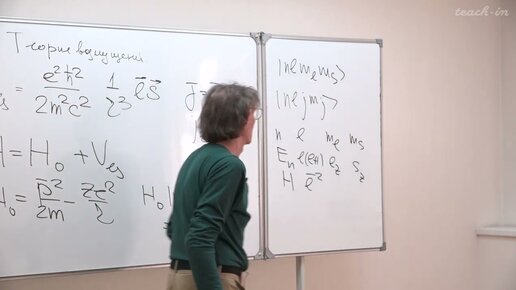 teach-in
Теория возмущений
= e²ħ² / 2m²c² 1/r³ l⃗ s⃗
= H₀ + V_ls
= p⃗² / 2m - ze² / r H₀
|n l m_l m_s⟩
|n l j m_j⟩
n l m_l m_s
E_n l(l+1) l_z s_z
H l⃗²